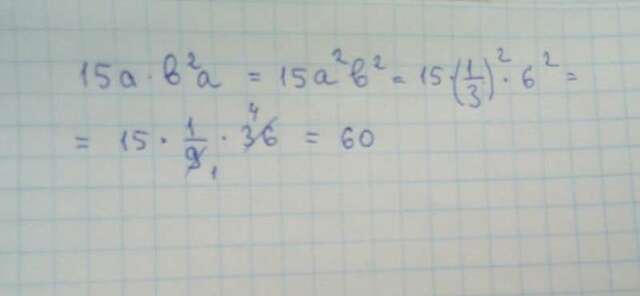 15a · b²a = 15a²b² = 15 · (1/3)² · 6² =
= 15 · 1/9 1 · 36 4 = 60